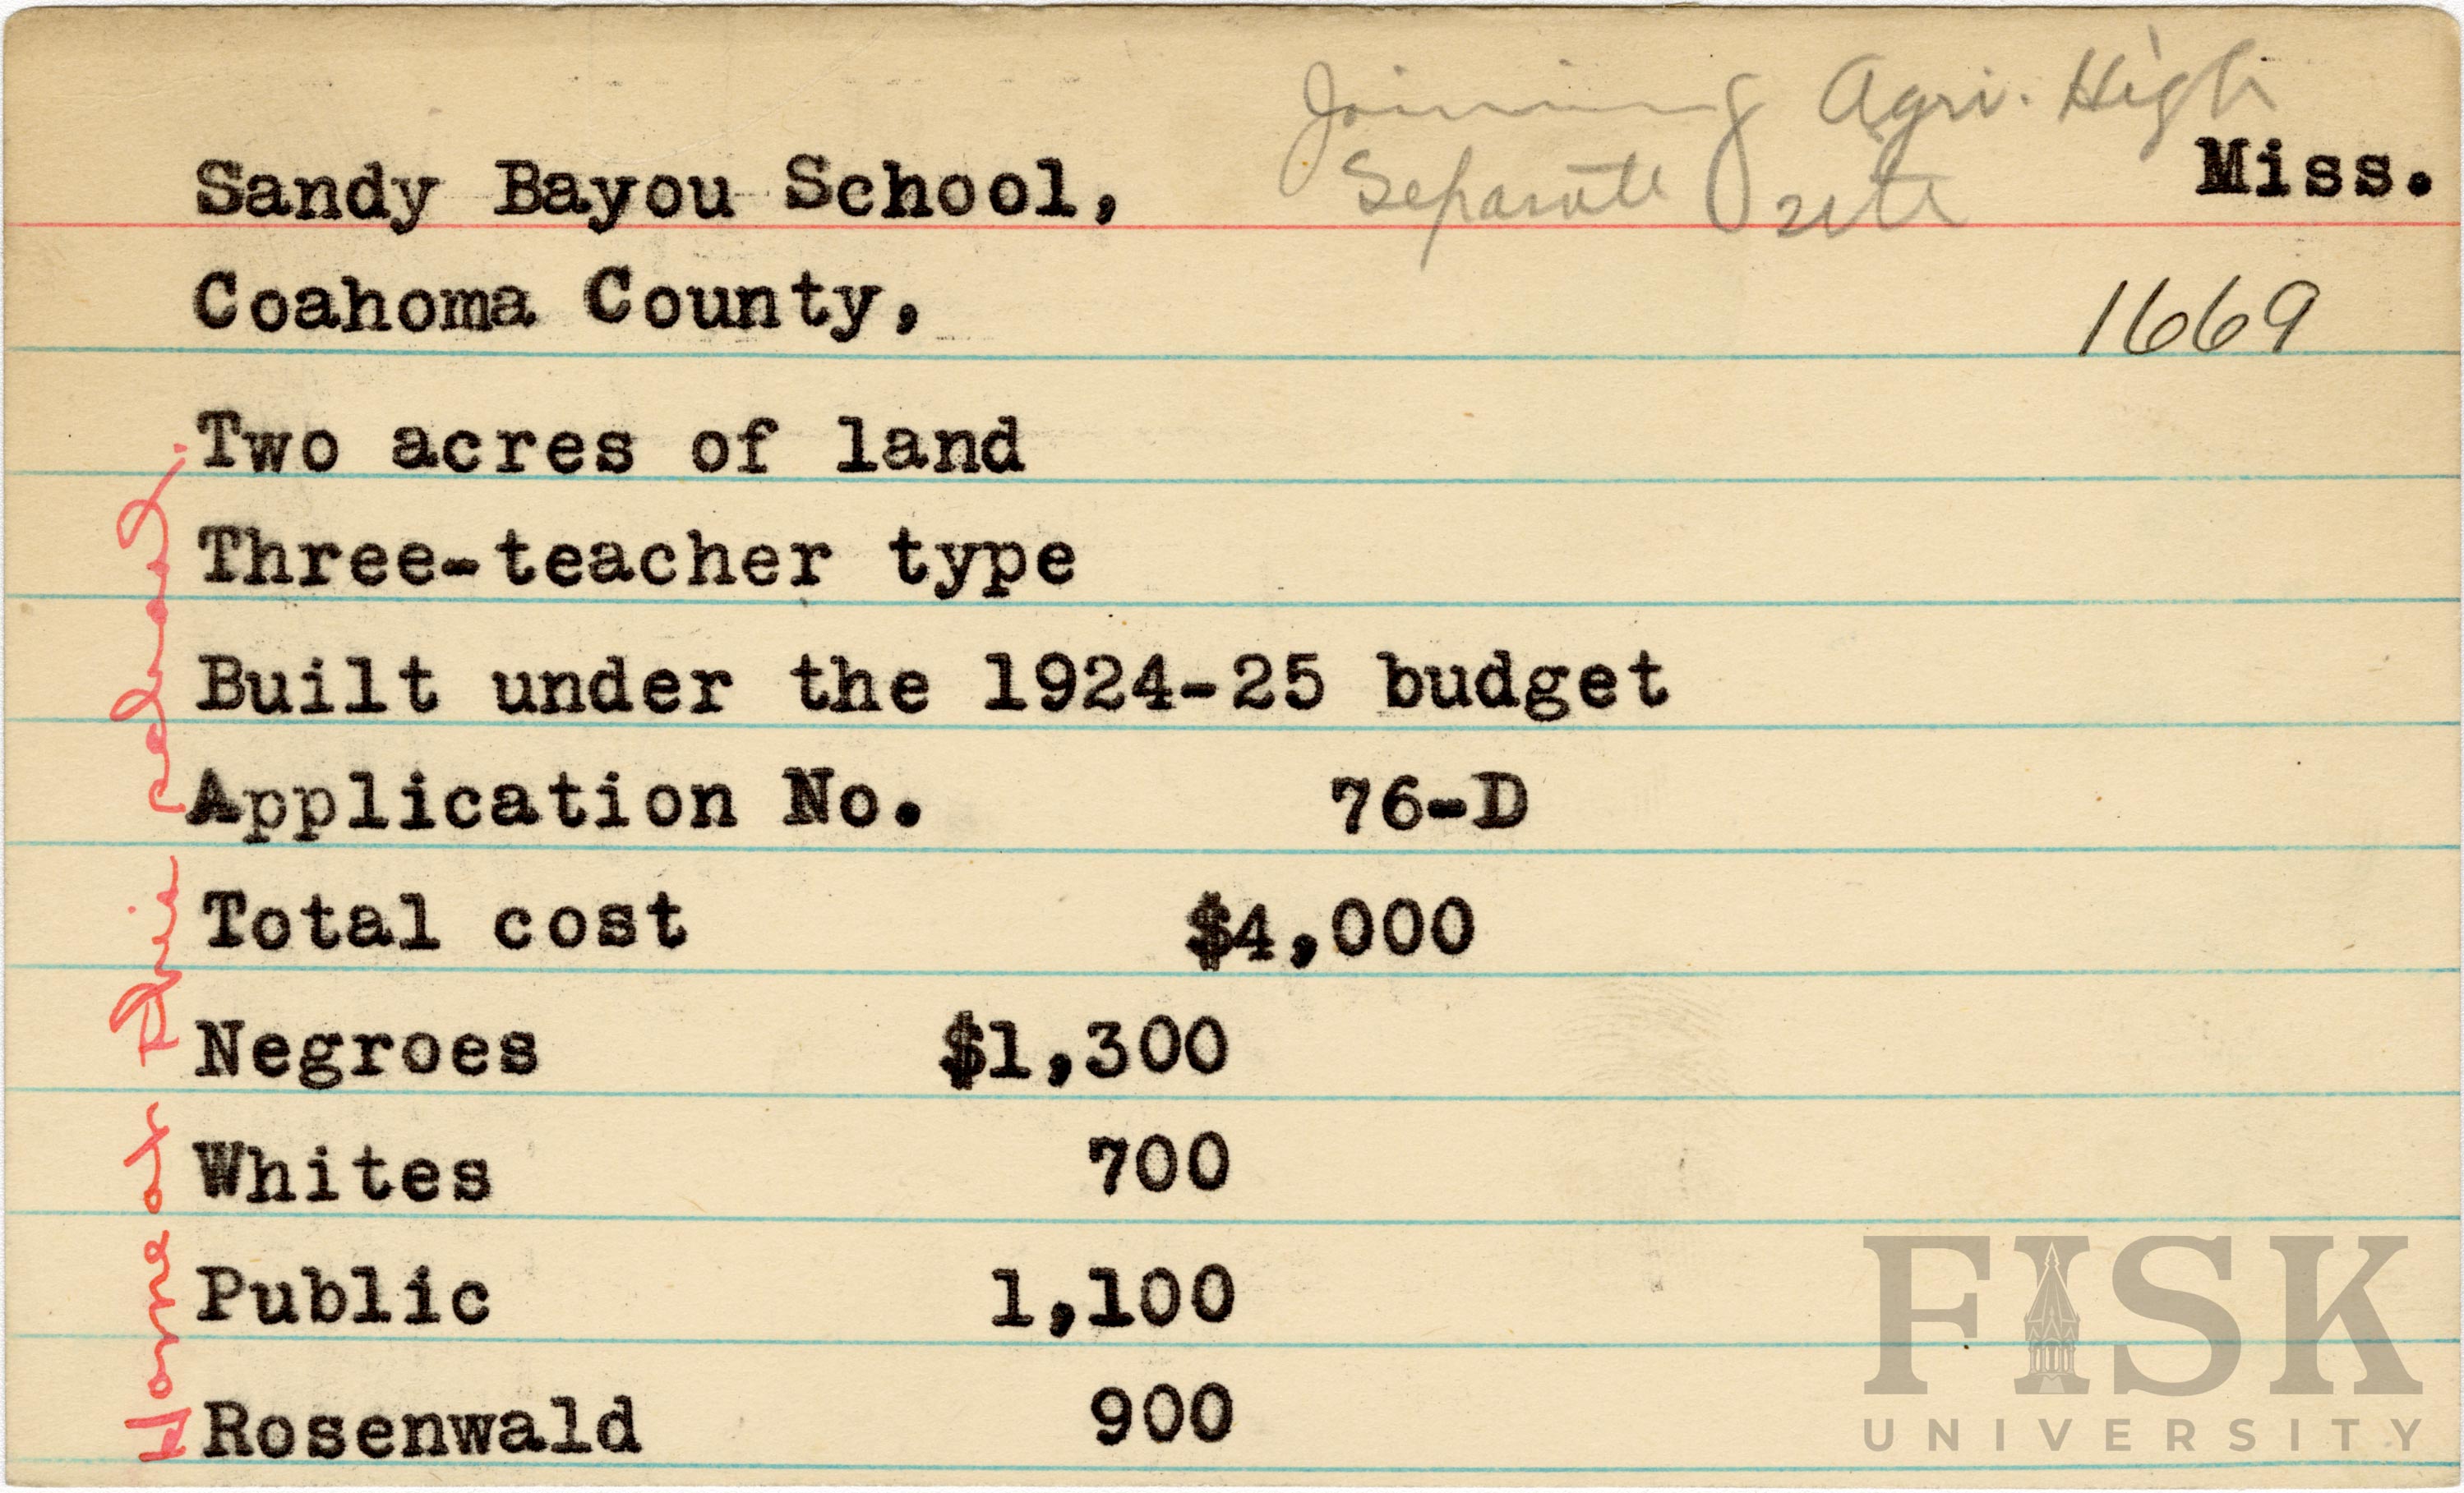 Joining Agri. High
Separate site
Sandy Bayou School, Miss.
Coahoma County, 1669
Two acres of land
Three-teacher type
Built under the 1924-25 budget
Application No. 76-D
Total cost $4,000
Negroes $1,300
Whites 700
Public 1,100
Rosenwald 900
Home at this school.
FISK
UNIVERSITY